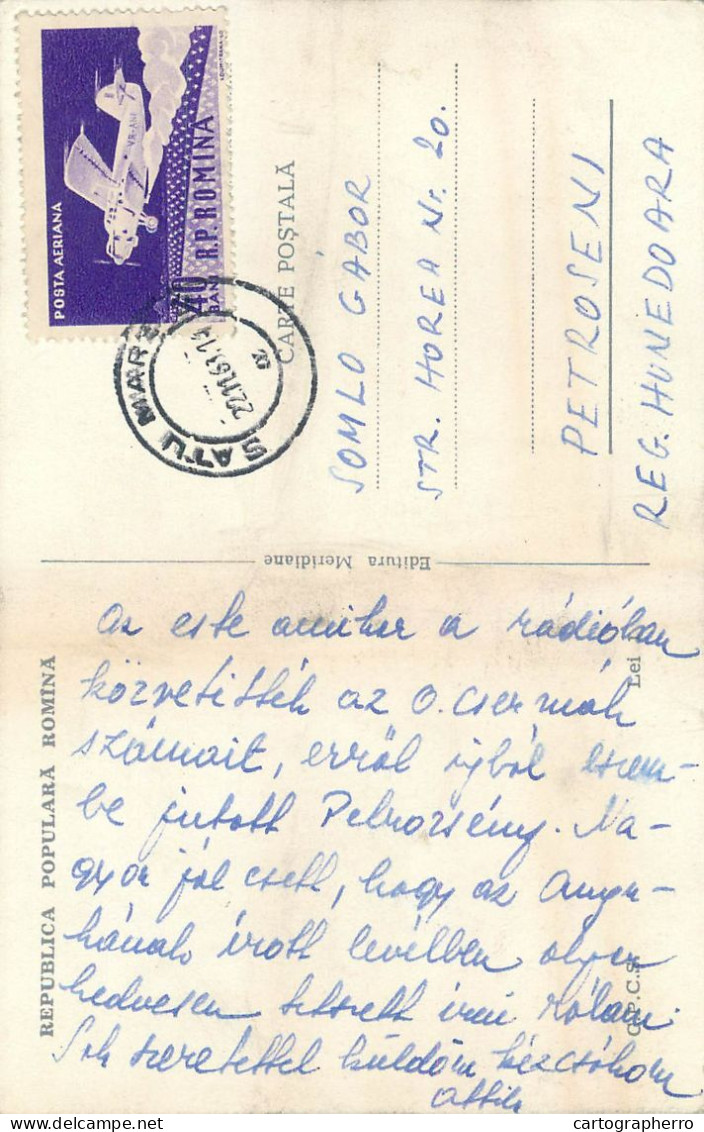 POSTA AERIANA
40 BANI
R.P. ROMINA
YR-ANI
SATU MARE
22.11.61.1
CARTE POȘTALĂ
SOMLO GÁBOR
STR. HOREA Nr. 20.
PETROSENI
REG. HUNEDOARA
Editura Meridiane
REPUBLICA POPULARĂ ROMÎNA
Lei
C.P.C.S.
Az este amikor a rádióban
közvetitték az O. Csermák
számait, erről ujból eszem-
be jutott Petrozsény. Na-
gyon jól esett, hogy az Anyu-
kának írott levélben olyan
kedvesen tetszett írni rólam.
Sok szeretettel küldöm kézcsókom
Attila
cartographerro